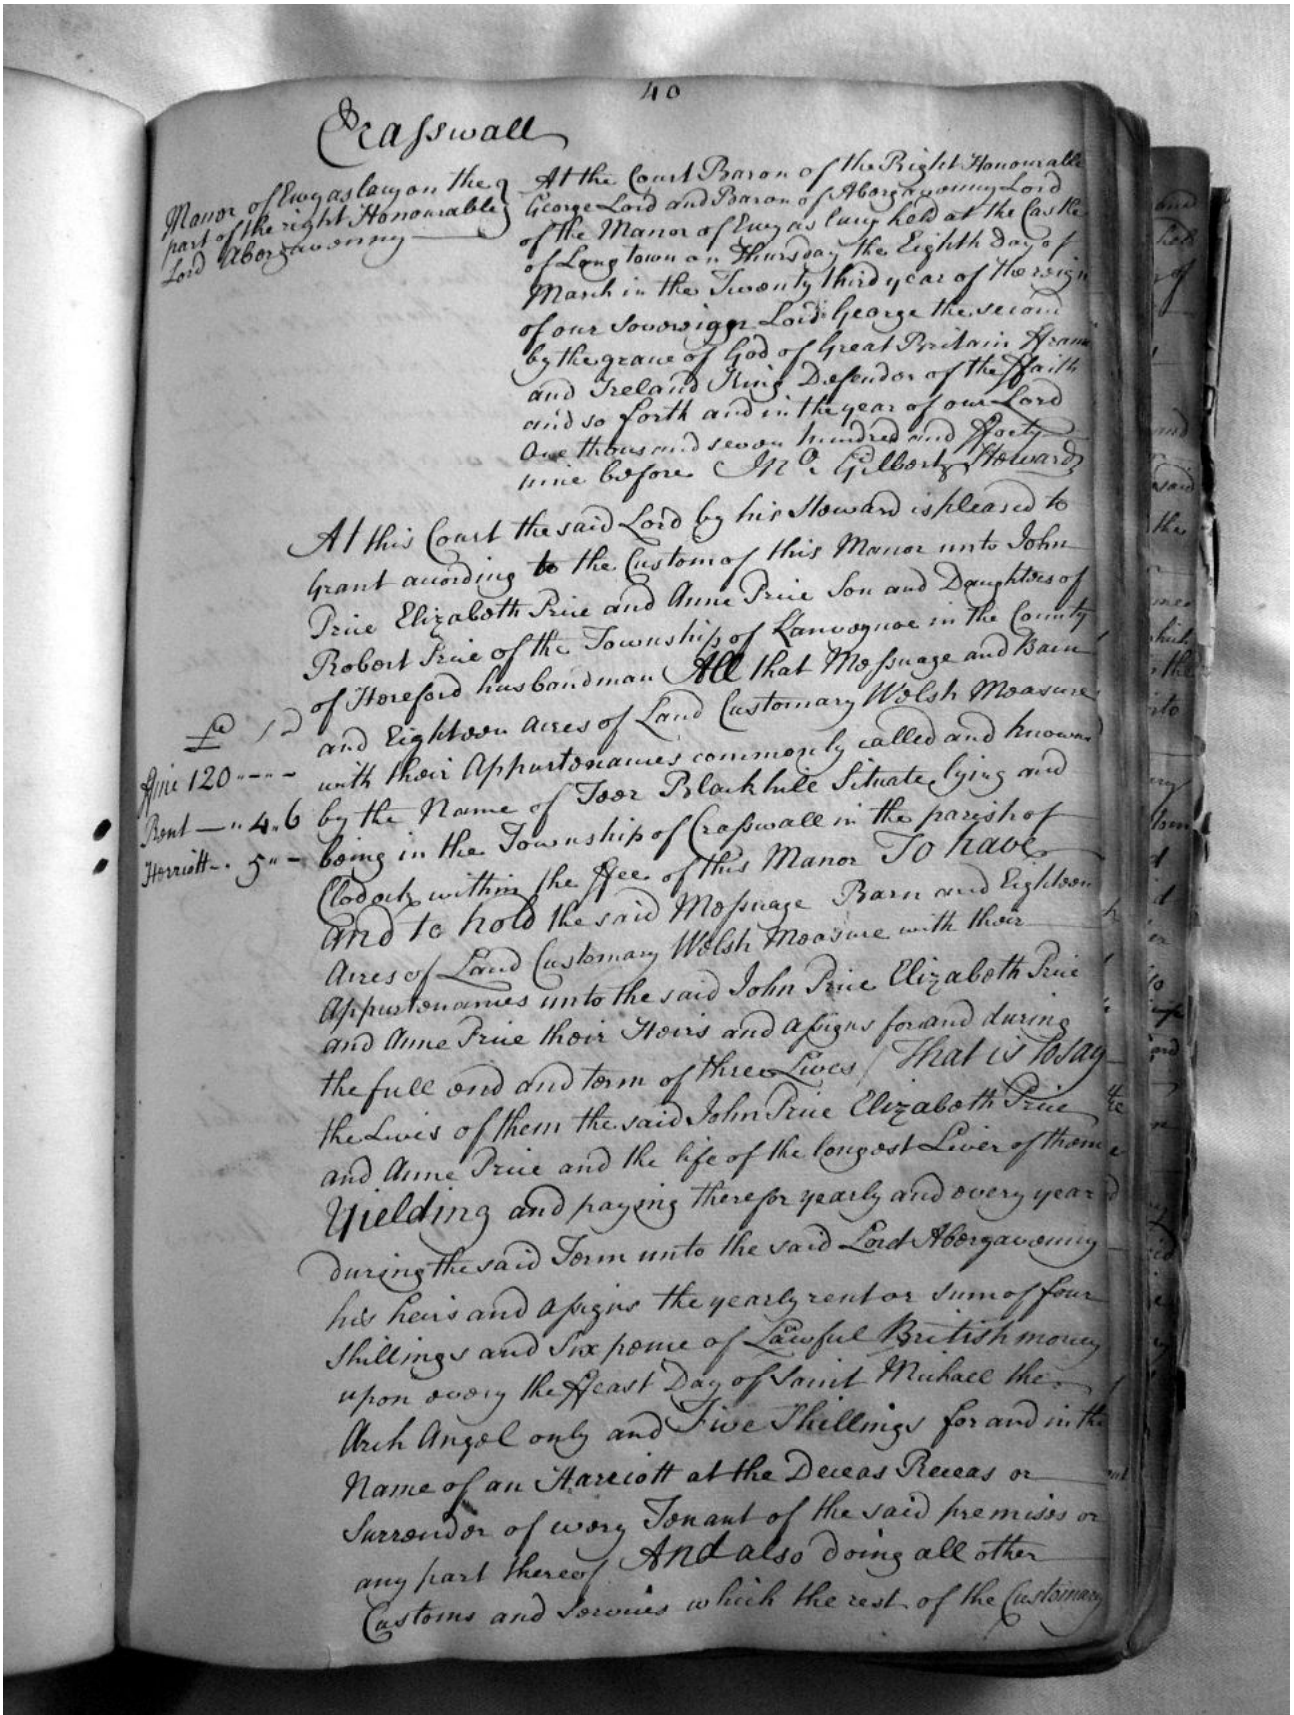 40
Crasswall
Manor of Ewyas lacy on the
part of the right Honourable
Lord Abergavenny
At the Court Baron of the Right Honourable
George Lord and Baron of Abergavenny Lord
of the Manor of Ewyas lacy held at the Castle
of Longtown on Thursday the Eighth Day of
March in the Twenty third year of the reign
of our Sovereign Lord George the second
by the grace of God of Great Britain ffrance
and Ireland King Defender of the ffaith
and so forth and in the year of our Lord
One thousand seven hundred and fforty
nine before Jno. Gilbert Steward
At this Court the said Lord by his Steward is pleased to
Grant according to the Custom of this Manor unto John
Price Elizabeth Price and Anne Price Son and Daughters of
Robert Price of the Township of Lanveynoe in the County
of Hereford husbandman All that Messuage and Barn
and Eighteen Acres of Land Customary Welsh Measure
with their Appurtenances commonly called and known
by the Name of Toor Blackhile Situate lying and
being in the Township of Crasswall in the parish of
Clodock within the ffee of this Manor To have
and to hold the said Messuage Barn and Eighteen
Acres of Land Customary Welsh Measure with their
Appurtenances unto the said John Price Elizabeth Price
and Anne Price their Heirs and assigns for and during
the full end and term of three Lives / That is to say
the Lives of them the said John Price Elizabeth Price
and Anne Price and the life of the longest Liver of them
Yielding and paying therefor yearly and every year
during the said Term unto the said Lord Abergavenny
his heirs and assigns the yearly rent or sum of four
shillings and Six pence of Lawful British money
upon every the ffeast Day of Saint Michael the
Arch Angel only and Five Shillings for and in the
Name of an Harriott at the Deceas Receas or
Surrender of every Tenant of the said premises or
any part thereof And also doing all other
Customs and Services which the rest of the Customary
ffine 120 " - " -
Rent - " 4 " 6
Herriott - . 5 " -